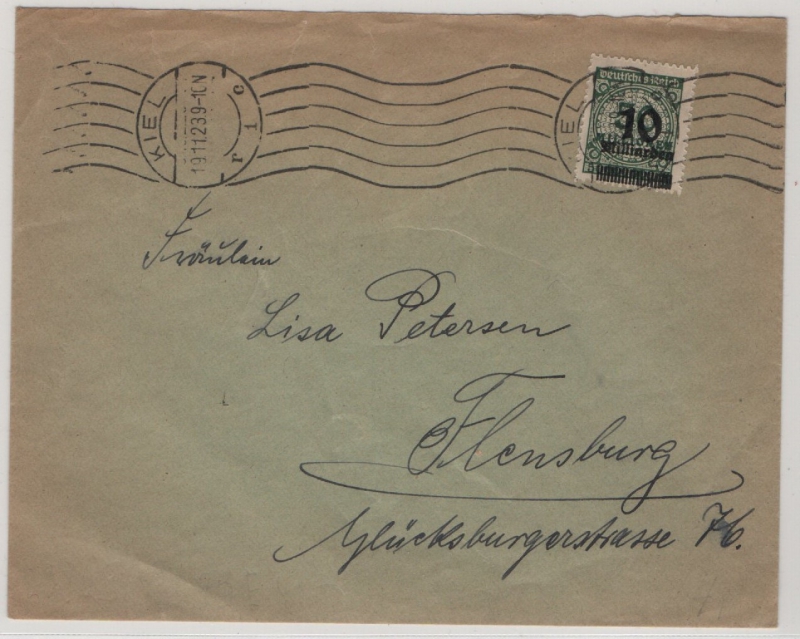 KIEL
19.11.23.9-10N
r 1 c
KIEL
Deutsches Reich
10
Milliarden
Fräulein
Lisa Petersen
Flensburg
Glücksburgerstrasse 76.